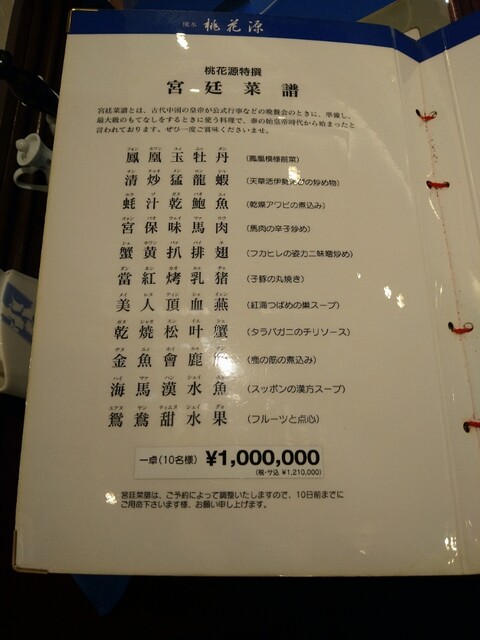 熊本 桃花源
桃花源特撰
宮廷菜譜
宮廷菜譜とは、古代中国の皇帝が公式行事などの晩餐会のときに、準備し、
最大級のもてなしをするときに使う料理で、秦の始皇帝時代から始まったと
言われております。ぜひ一度ご賞味くださいませ。
鳳凰玉牡丹 (鳳凰模様前菜)
清炒猛龍蝦 (天草活伊勢えびの炒め物)
蚝汁乾鮑魚 (乾燥アワビの煮込み)
宮保味馬肉 (馬肉の辛子炒め)
蟹黄扒排翅 (フカヒレの姿カニ味噌炒め)
當紅烤乳猪 (子豚の丸焼き)
美人頂血燕 (紅海つばめの巣スープ)
乾焼松叶蟹 (タラバガニのチリソース)
金魚會鹿 (鹿の筋の煮込み)
海馬漢水魚 (スッポンの漢方スープ)
鴛鴦甜水果 (フルーツと点心)
一卓(10名様) ¥1,000,000
(税・サ込 ¥1,210,000)
宮廷菜譜は、ご予約によって調整いたしますので、10日前までに
ご用命下さいます様、お願い申し上げます。